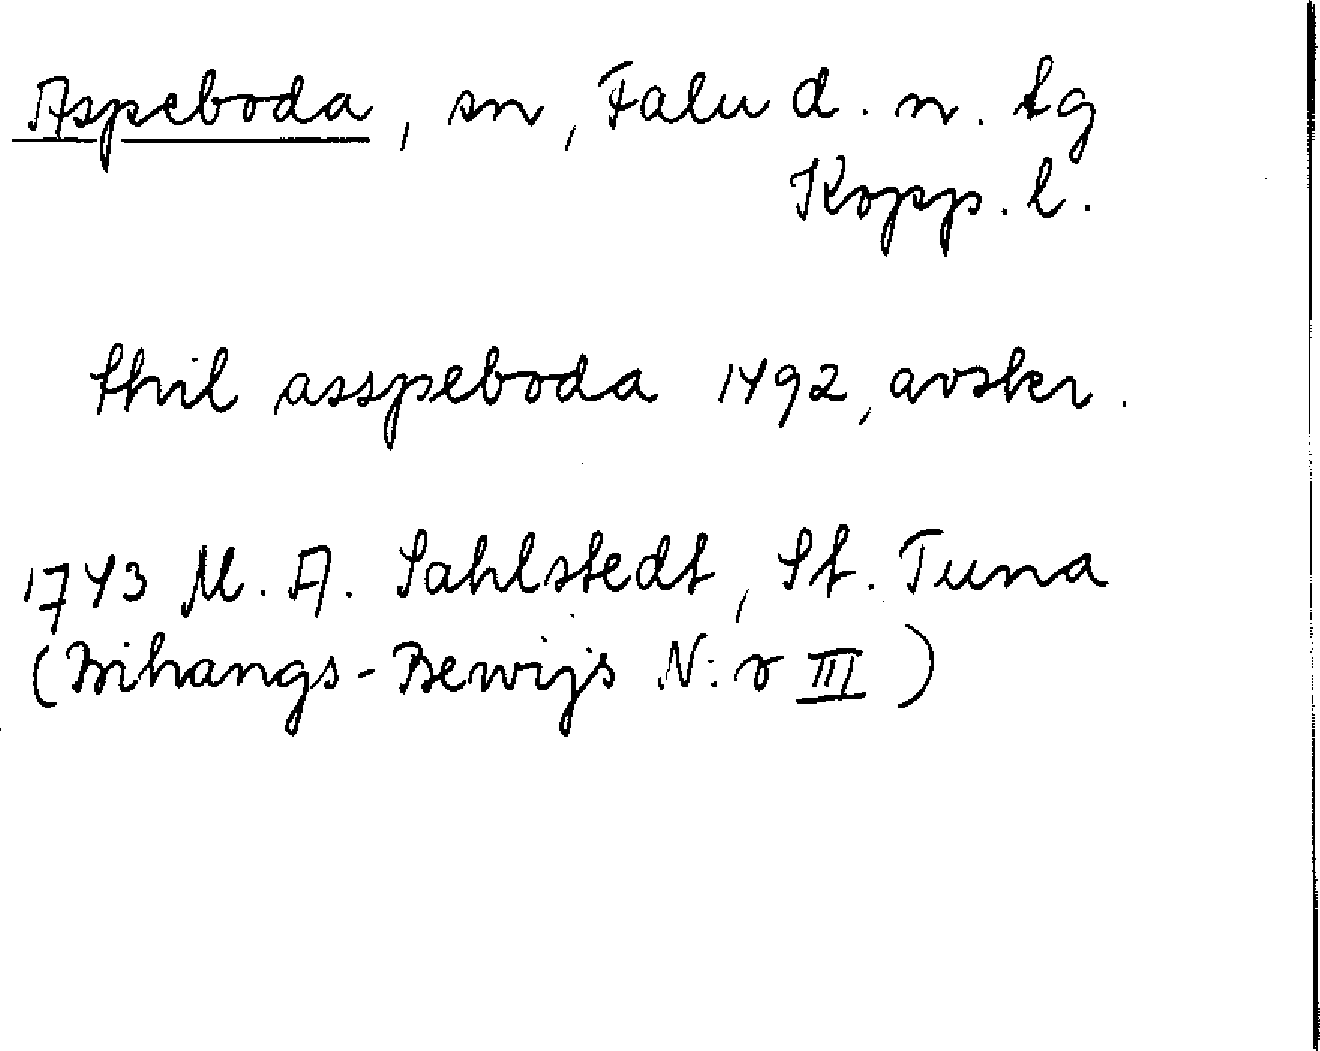 Aspeboda, sn, Falu d. n. tg
Kopp. l.
thil asspeboda 1492, avskr.
1743 M. A. Sahlstedt, St. Tuna
(Bihangs-Bewijs N:r III)